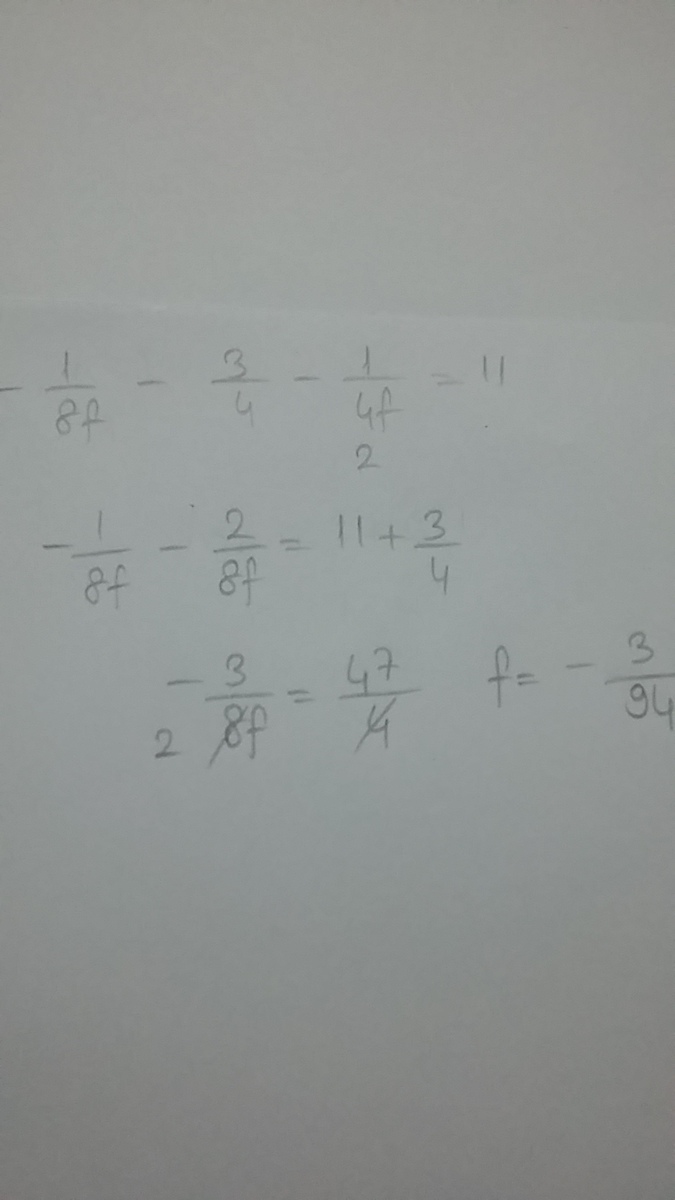 - 1/8f - 3/4 - 1/4f = 11
2
- 1/8f - 2/8f = 11 + 3/4
- 3/8f = 47/4 f = - 3/94
2